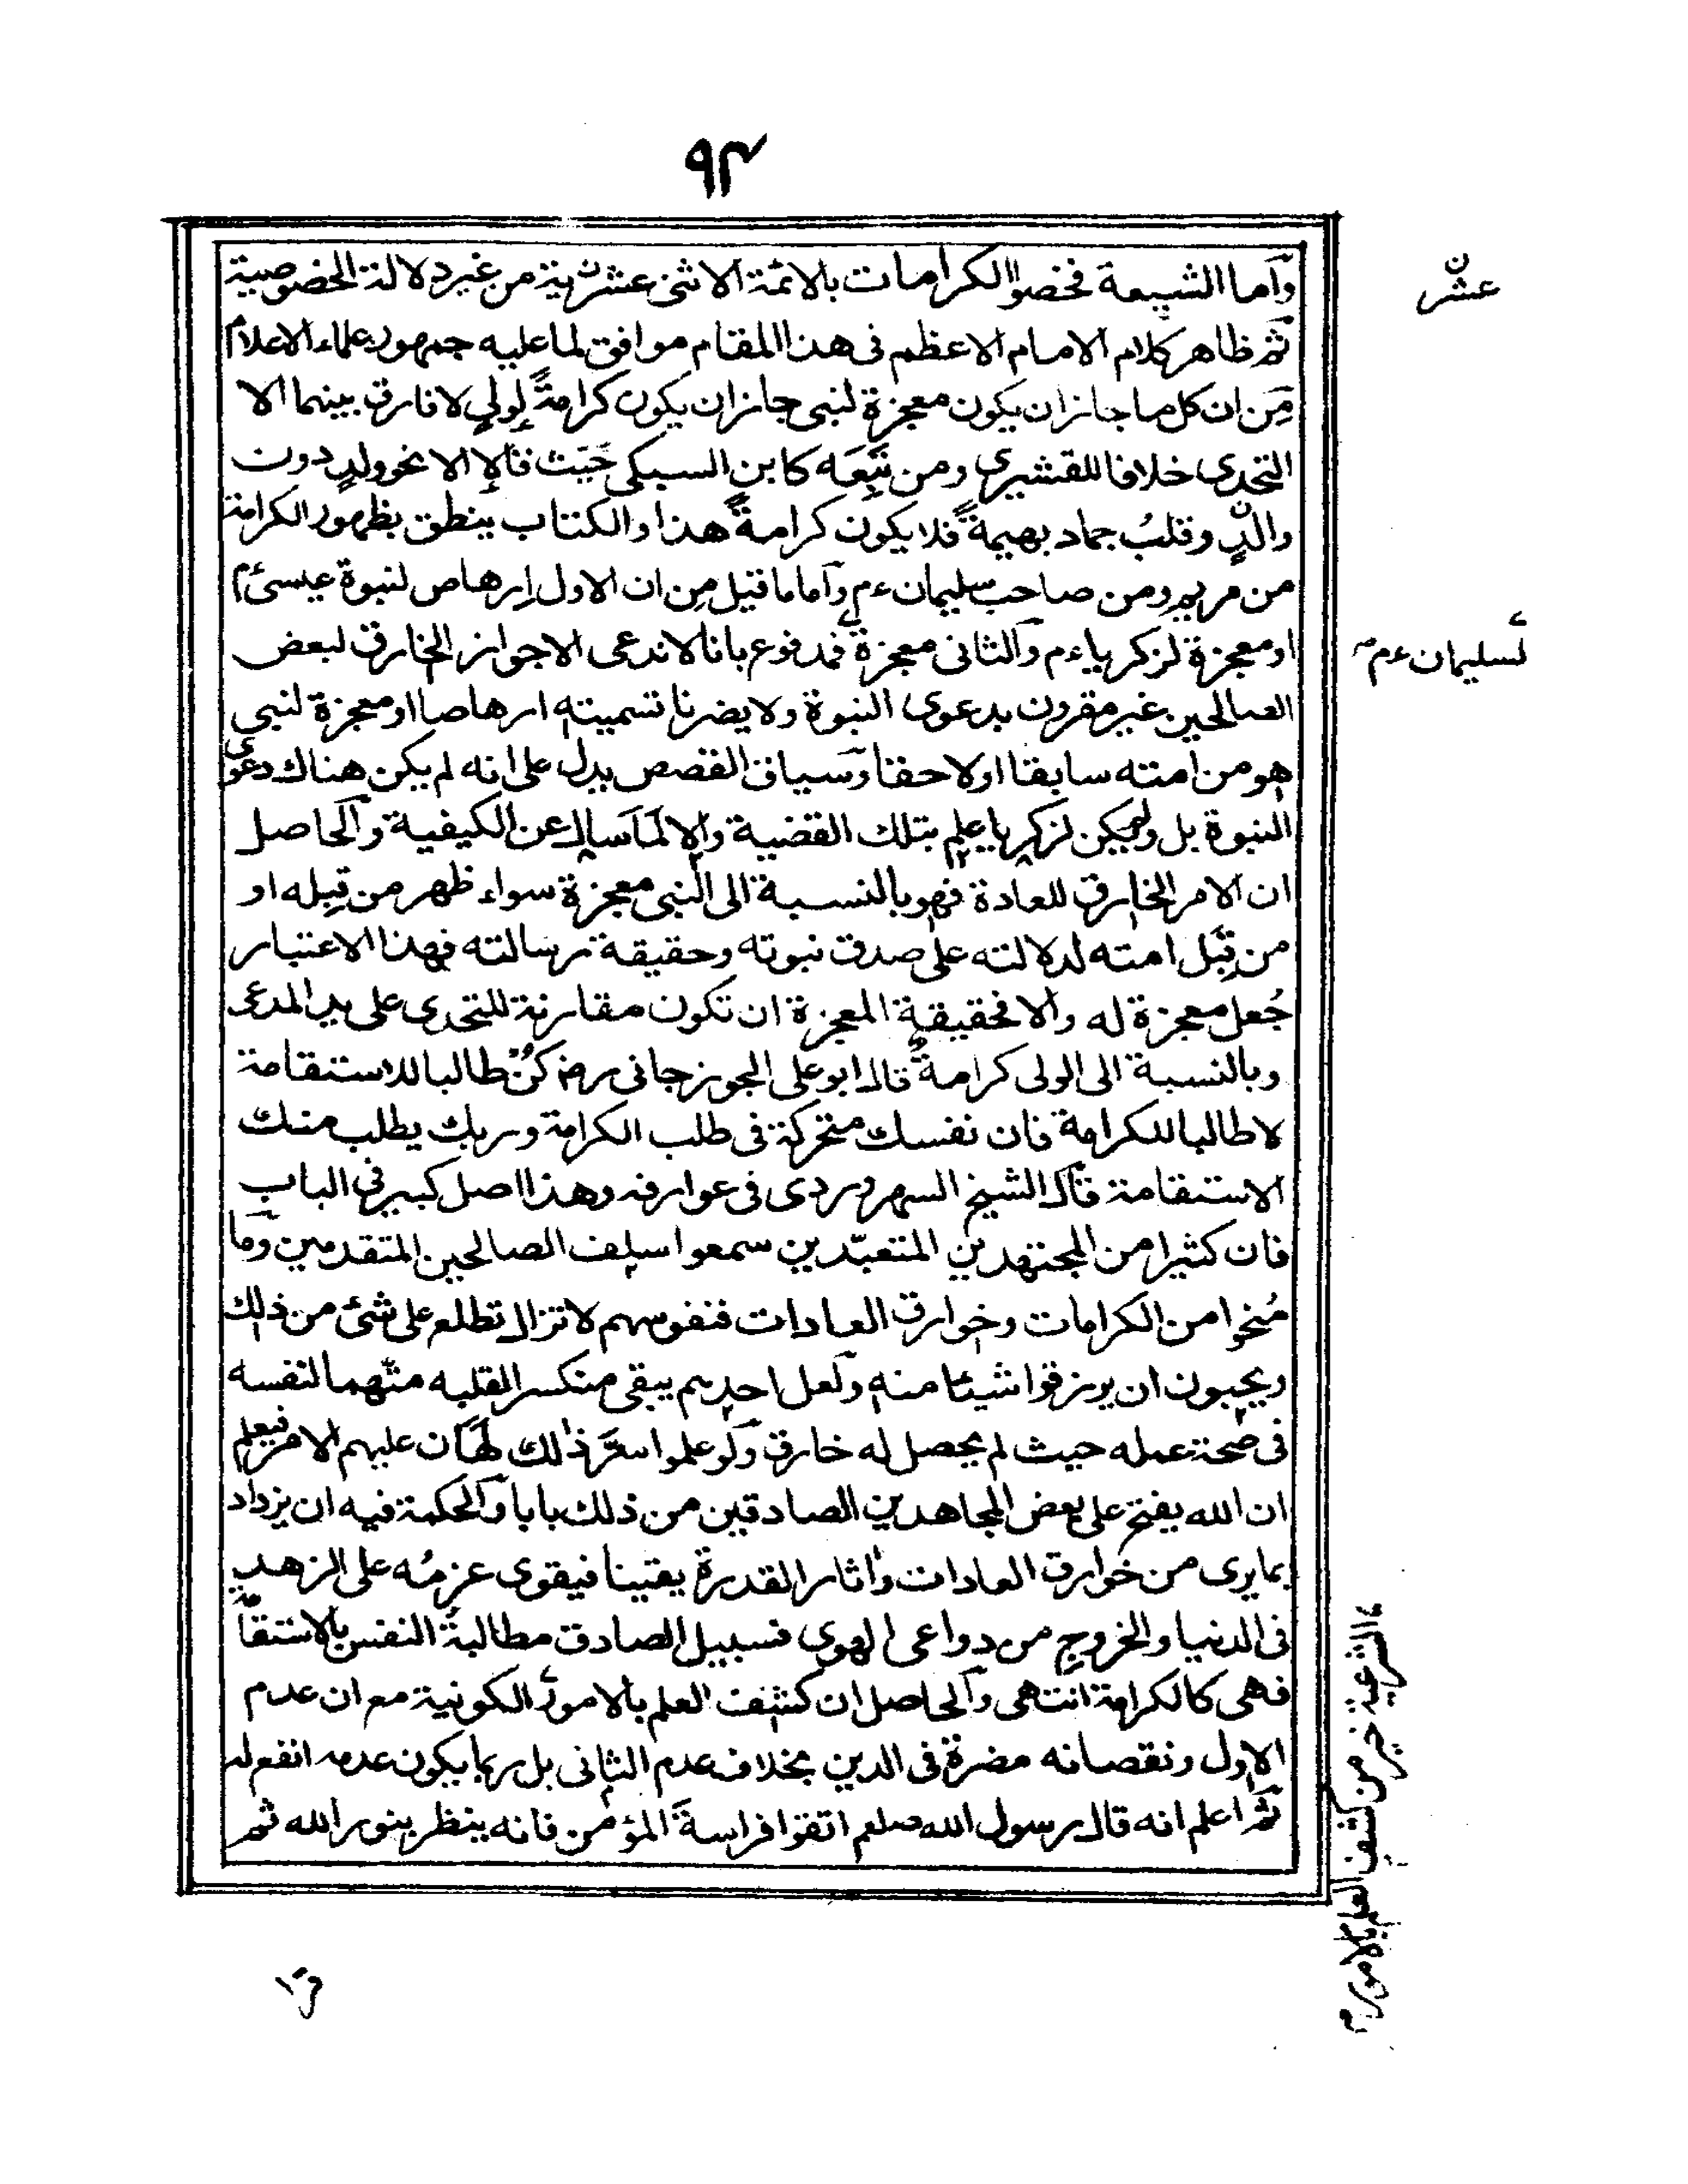 ٩٣
وآما الشيعة فخصوا الكرامات بالائمة الاثنى عشرية من غير دلالة الخصوصية
ثم ظاهر كلام الامام الاعظم فى هذا المقام موافق لما عليه جمهور علماء الاعلام
مِن ان كل ما جاز ان يكون معجزة لنبى جاز ان يكون كرامةً لولىٍ لا فارق بينهما الا
التحدى خلافا للقشيرى ومن تَبِعَه كابن السبكى حيث قالا الا نحو ولدٍ دون
والدٍ وقلبُ جماد بهيمةً فلا يكون كرامةً هذا والكتاب ينطق بظهور الكرامة
من مريم ومن صاحب سليمان ءم وآما ما قيل مِن ان الاول اِرهاص لنبوة عيسىٰ م
او معجزة لزكرياءم وآلثانى معجزة فمدفوع بانا لا ندعى الا جواز الخارق لبعض
الصالحين غير مقرون بدعوى النبوة ولا يضرنا تسميته ارهاصا او معجزة لنبى
هو من امته سابقا او لاحقا وسياق القصص يدل على انه لم يكن هناك دعوى
النبوة بل ولم يكن لزكريا علم بتلك القضية والا لَمَا سَاَل عن الكيفية وآلحاصل
ان الامر الخارق للعادة فهو بالنسبة الى النبى معجزة سواء ظهر من قِبله او
من قِبَل امته لدلالته على صدق نبوته وحقيقة رسالته فبهذا الاعتبار
جُعل معجزة له والا فحقيقة المعجزة ان تكون مقارنة للتحدى على يد المدعى
وبالنسبة الى الولى كرامةٌ قال ابو على الجوزجانى رض كُنْ طالبا للاستقامة
لا طالبا للكرامة فان نفسك متحركة فى طلب الكرامة وربك يطلب منك
الاستقامة قآل الشيخ السهروردى فى عوارفه وهذا اصل كبير فى الباب
فان كثيرا من المجتهدين المتعبّدين سمعوا سلف الصالحين المتقدمين وما
مُنحوا من الكرامات وخوارق العادات فنفوسهم لا تزال تطلع على شئ من ذلك
ويحبون ان يرزقوا شيئا منه ولعل احدهم يبقى منكسر القلبه متّهما لنفسه
فى صحة عمله حيث لم يحصل له خارق ولو علموا سرَّ ذلك لهَان عليهم الامر فيعلم
ان الله يفتح على بعض المجاهدين الصادقين من ذلك بابا وآلحكمة فيه ان يزداد
بما يرى من خوارق العادات واثار القدرة يقينا فيقوى عزمُه على الزهد
فى الدنيا والخروج من دواعى الهوى فسبيل الصادق مطالبةُ النفس بالاستقامة
فهى كالكرامة انتهى وآلحاصل ان كشف العلم بالامور الكونية مع ان عدم
الاول ونقصانه مضرة فى الدين بخلاف عدم الثانى بل ربما يكون عدمه انفع له
ثم اعلم انه قال رسول الله صلعم اتقوا فراسةَ المؤمن فانه ينظر بنور الله ثم
عشر
لسليمان ءم
الشرعية خير من كشف العلم بالامور م